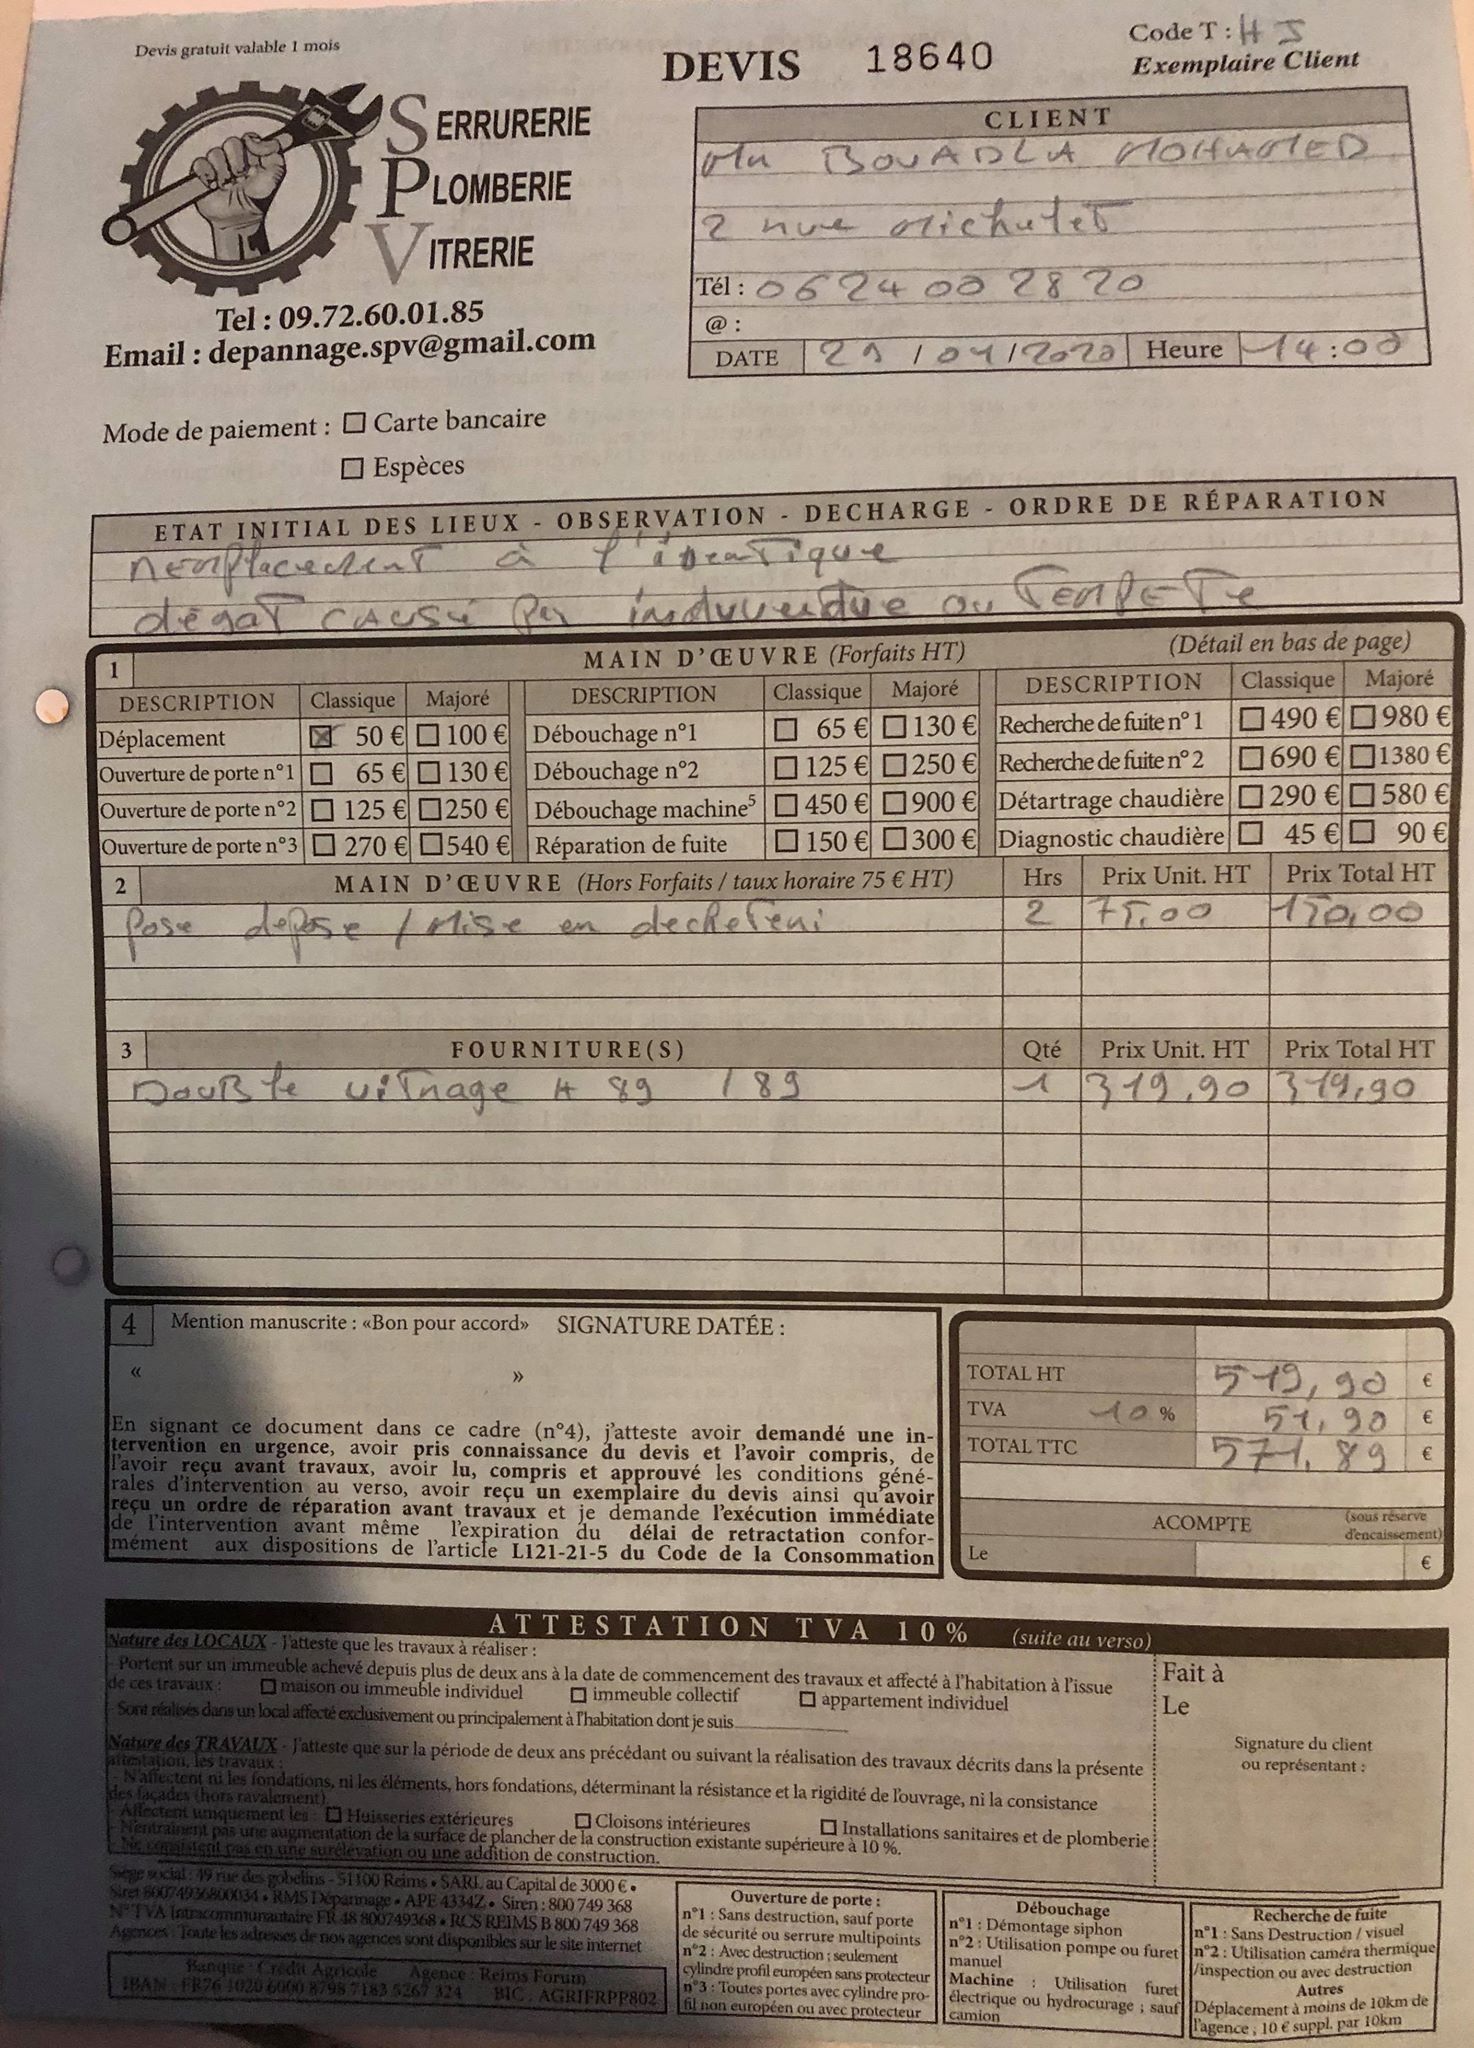 Devis gratuit valable 1 mois
DEVIS 18640
Code T : H J
Exemplaire Client
SERRURERIE
PLOMBERIE
VITRERIE
Tel : 09.72.60.01.85
Email : depannage.spv@gmail.com
CLIENT
Mr BOUADLA MOHAMED
2 rue Michelet
Tél : 06 24 00 28 20
@ :
DATE 29 / 04 / 2020 Heure 14 : 00
Mode de paiement : Carte bancaire
Espèces
ETAT INITIAL DES LIEUX - OBSERVATION - DECHARGE - ORDRE DE RÉPARATION
remplacement à l'identique
dégat causé par ou TEMPETE
1 MAIN D'ŒUVRE (Forfaits HT) (Détail en bas de page)
DESCRIPTION Classique Majoré DESCRIPTION Classique Majoré DESCRIPTION Classique Majoré
Déplacement 50 € 100 € Débouchage n°1 65 € 130 € Recherche de fuite n°1 490 € 980 €
Ouverture de porte n°1 65 € 130 € Débouchage n°2 125 € 250 € Recherche de fuite n°2 690 € 1380 €
Ouverture de porte n°2 125 € 250 € Débouchage machine5 450 € 900 € Détartrage chaudière 290 € 580 €
Ouverture de porte n°3 270 € 540 € Réparation de fuite 150 € 300 € Diagnostic chaudière 45 € 90 €
2 MAIN D'ŒUVRE (Hors Forfaits / taux horaire 75 € HT) Hrs Prix Unit. HT Prix Total HT
Pose depose / Mise en decheteri 2 75,00 150,00
3 FOURNITURE(S) Qté Prix Unit. HT Prix Total HT
Double vitrage H 89 / 89 1 319,90 319,90
4 Mention manuscrite : «Bon pour accord» SIGNATURE DATÉE :
« »
En signant ce document dans ce cadre (n°4), j'atteste avoir demandé une in-
tervention en urgence, avoir pris connaissance du devis et l'avoir compris, de
l'avoir reçu avant travaux, avoir lu, compris et approuvé les conditions géné-
rales d'intervention au verso, avoir reçu un exemplaire du devis ainsi qu'avoir
reçu un ordre de réparation avant travaux et je demande l'exécution immédiate
de l'intervention avant même l'expiration du délai de retractation confor-
mément aux dispositions de l'article L121-21-5 du Code de la Consommation
TOTAL HT 519,90 €
TVA 10 % 51,90 €
TOTAL TTC 571,89 €
ACOMPTE (sous réserve
d'encaissement)
Le €
ATTESTATION TVA 10% (suite au verso)
Nature des LOCAUX - J'atteste que les travaux à réaliser :
- Portent sur un immeuble achevé depuis plus de deux ans à la date de commencement des travaux et affecté à l'habitation à l'issue
de ces travaux : maison ou immeuble individuel immeuble collectif appartement individuel
- Sont réalisés dans un local affecté exclusivement ou principalement à l'habitation dont je suis
Nature des TRAVAUX - J'atteste que sur la période de deux ans précédant ou suivant la réalisation des travaux décrits dans la présente
attestation, les travaux :
- N'affectent ni les fondations, ni les éléments, hors fondations, déterminant la résistance et la rigidité de l'ouvrage, ni la consistance
des façades (hors ravalement).
- Affectent uniquement les : Huisseries extérieures Cloisons intérieures Installations sanitaires et de plomberie
- N'entraînent pas une augmentation de la surface de plancher de la construction existante supérieure à 10 %.
- Ne consistent pas en une surélévation ou une addition de construction.
Fait à
Le
Signature du client
ou représentant :
Siège social : 49 rue des gobelins - 51100 Reims • SARL au Capital de 3000 € •
Siret 80074936800034 • RMS Dépannage • APE 4334Z • Siren : 800 749 368
N° TVA Intracommunautaire FR 48 800749368 • RCS REIMS B 800 749 368
Agences : Toute les adresses de nos agences sont disponibles sur le site internet
Banque : Crédit Agricole Agence : Reims Forum
IBAN : FR76 1020 6000 8798 7183 5267 324 BIC : AGRIFRPP802
Ouverture de porte :
n°1 : Sans destruction, sauf porte
de sécurité ou serrure multipoints
n°2 : Avec destruction ; seulement
cylindre profil européen sans protecteur
n°3 : Toutes portes avec cylindre pro-
fil non européen ou avec protecteur
Débouchage
n°1 : Démontage siphon
n°2 : Utilisation pompe ou furet
manuel
Machine : Utilisation furet
électrique ou hydrocurage ; sauf
camion
Recherche de fuite
n°1 : Sans Destruction / visuel
n°2 : Utilisation caméra thermique
/inspection ou avec destruction
Autres
Déplacement à moins de 10km de
l'agence ; 10 € suppl. par 10km